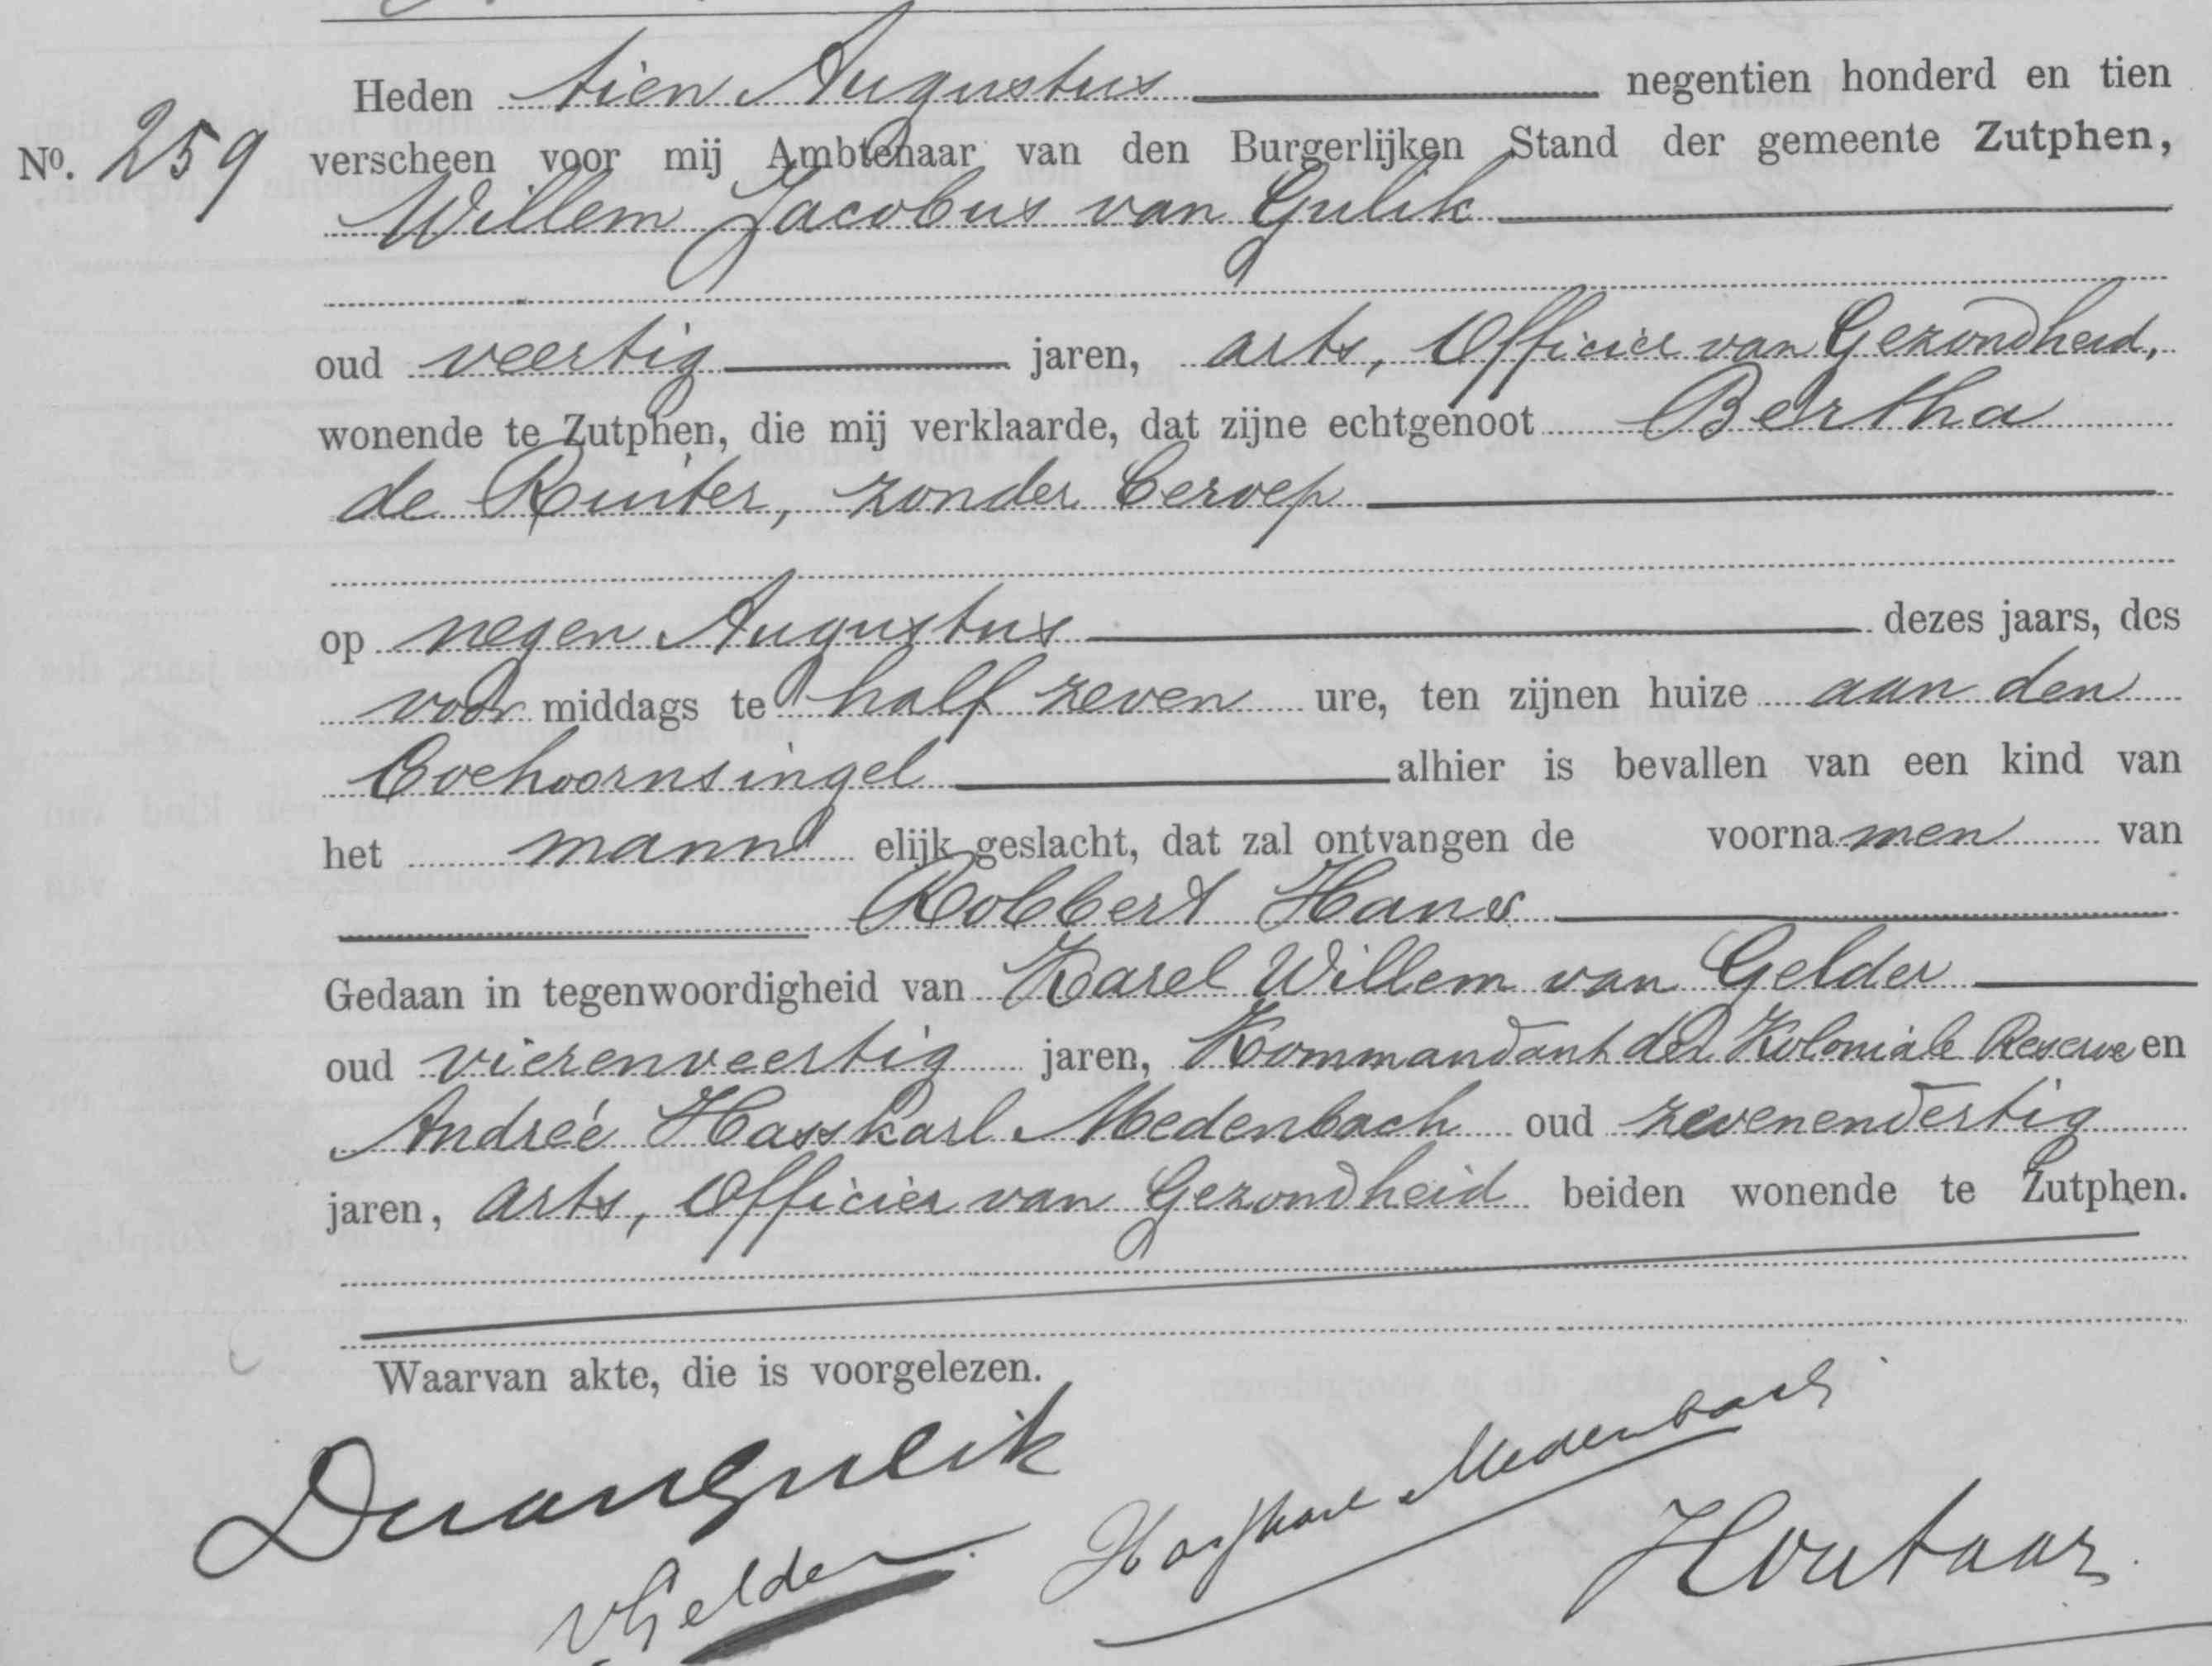 Heden tien Augustus negentien honderd en tien
No. 259 verscheen voor mij Ambtenaar van den Burgerlijken Stand der gemeente Zutphen,
Willem Jacobus van Gulik
oud veertig jaren, arts, Officier van Gezondheid,
wonende te Zutphen, die mij verklaarde, dat zijne echtgenoot Bertha
de Ruiter, zonder beroep
op negen Augustus dezes jaars, des
voor middags te half zeven ure, ten zijnen huize aan den
Coehoornsingel alhier is bevallen van een kind van
het mann elijk geslacht, dat zal ontvangen de voorna men van
Robbert Hans
Gedaan in tegenwoordigheid van Karel Willem van Gelder
oud vierenveertig jaren, Kommandant der Koloniale Reserve en
Andreé Hasskarl Medenbach oud zevenendertig
jaren, arts, Officier van Gezondheid beiden wonende te Zutphen.
Waarvan akte, die is voorgelezen.
Hasskarl Medenbach
vGelder